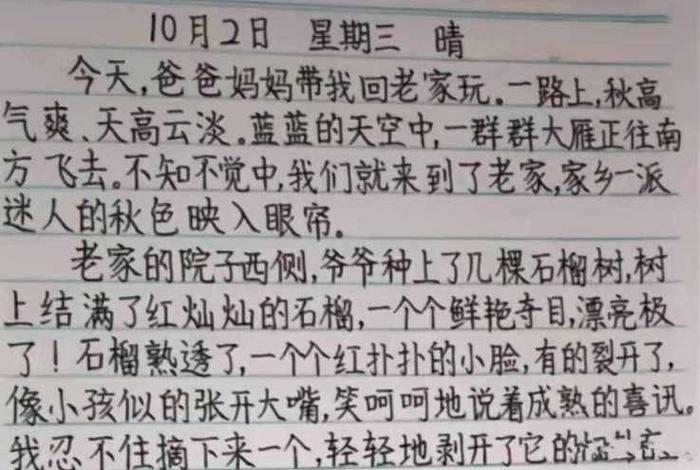 10月2日 星期三 晴
今天,爸爸妈妈带我回老家玩。一路上,秋高
气爽、天高云淡。蓝蓝的天空中,一群群大雁正往南
方飞去。不知不觉中,我们就来到了老家,家乡一派
迷人的秋色映入眼帘。
老家的院子西侧,爷爷种上了几棵石榴树,树
上结满了红灿灿的石榴,一个个鲜艳夺目,漂亮极
了!石榴熟透了,一个个红扑扑的小脸,有的裂开了,
像小孩似的张开大嘴,笑呵呵地说着成熟的喜讯。
我忍不住摘下来一个,轻轻地剥开了它的